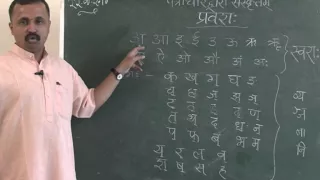 पत्राचारद्वारा संस्कृतम्
प्रवेशः
अ आ इ ई उ ऊ ऋ ॠ
ऐ ओ औ अं अः
स्वराः
क ख ग घ ङ
च छ ज झ ञ
ट ठ ड ढ ण
त थ द ध न
प फ ब भ म
य र ल व
श ष स ह
व्यञ्जनानि